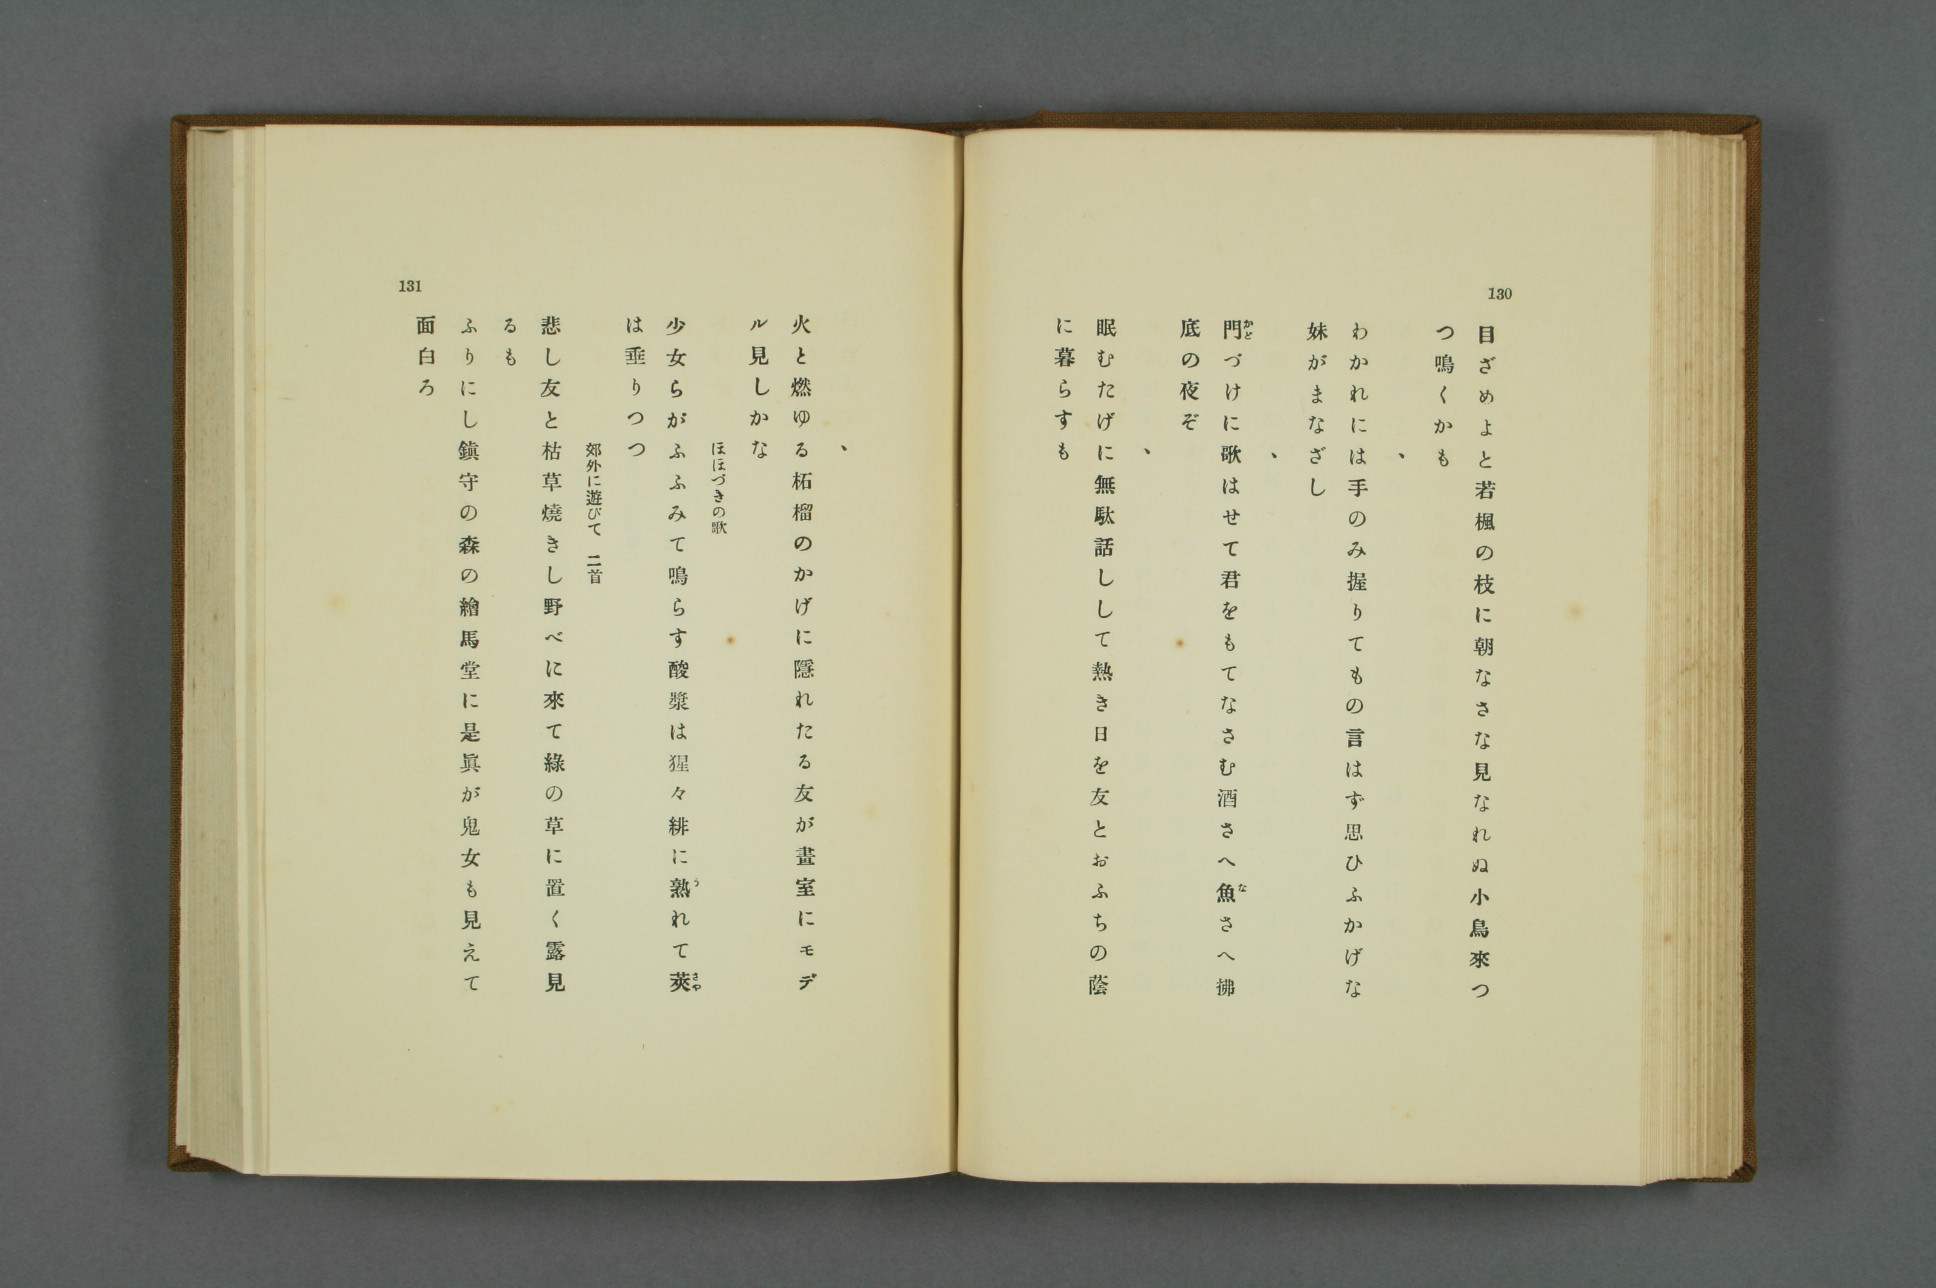 130
目ざめよと若楓の枝に朝なさな見なれぬ小鳥來つ
つ鳴くかも
、
わかれには手のみ握りてもの言はず思ひふかげな
妹がまなざし
、
門づけに歌はせて君をもてなさむ酒さへ魚さへ拂
かど
な
底の夜ぞ
、
眠むたげに無駄話しして熱き日を友とおふちの蔭
に暮らすも
131
、
火と燃ゆる柘榴のかげに隱れたる友が畫室にモデ
ル見しかな
ほほづきの歌
少女らがふふみて鳴らす酸漿は猩々緋に熟れて莢
う
さや
は垂りつつ
郊外に遊びて 二首
悲し友と枯草燒きし野べに來て綠の草に置く露見
るも
ふりにし鎭守の森の繪馬堂に是眞が鬼女も見えて
面白ろ